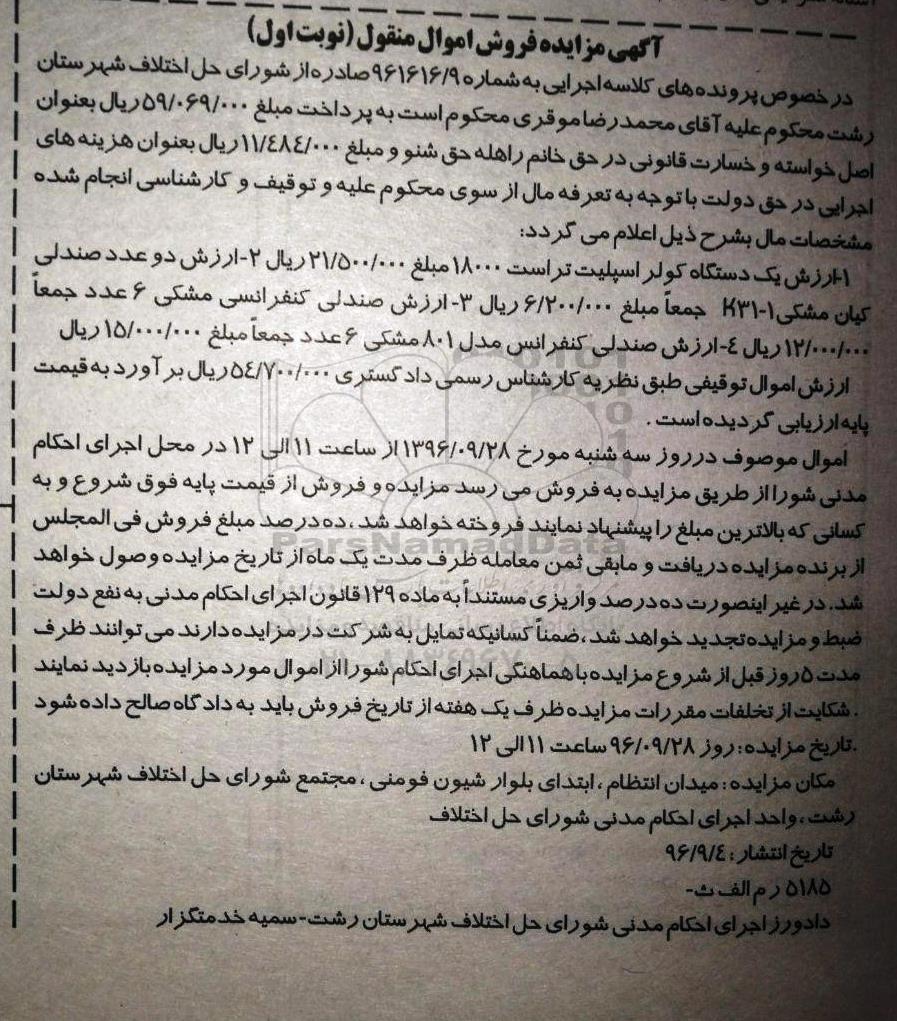 آگهی مزایده فروش اموال منقول (نوبت اول)
در خصوص پرونده های کلاسه اجرایی به شماره ۹۶۱۶۱۶/۹ صادره از شورای حل اختلاف شهرستان
رشت محکوم علیه آقای محمدرضا موقری محکوم است به پرداخت مبلغ ۵۹/۰۶۹/۰۰۰ ریال بعنوان
اصل خواسته و خسارت قانونی در حق خانم راهله حق شنو و مبلغ ۱۱/۴۸۴/۰۰۰ ریال بعنوان هزینه های
اجرایی در حق دولت با توجه به تعرفه مال از سوی محکوم علیه و توقیف و کارشناسی انجام شده
مشخصات مال بشرح ذیل اعلام می گردد:
۱-ارزش یک دستگاه کولر اسپلیت تراست ۱۸۰۰۰ مبلغ ۲۱/۵۰۰/۰۰۰ ریال ۲-ارزش دو عدد صندلی
کیان مشکی K۳۱-۱ جمعاً مبلغ ۶/۲۰۰/۰۰۰ ریال ۳- ارزش صندلی کنفرانسی مشکی ۶ عدد جمعاً
۱۲/۰۰۰/۰۰۰ ریال ۴-ارزش صندلی کنفرانس مدل ۸۰۱ مشکی ۶ عدد جمعاً مبلغ ۱۵/۰۰۰/۰۰۰ ریال
ارزش اموال توقیفی طبق نظریه کارشناس رسمی دادگستری ۵۴/۷۰۰/۰۰۰ ریال بر آورد به قیمت
پایه ارزیابی گردیده است .
اموال موصوف در روز سه شنبه مورخ ۱۳۹۶/۰۹/۲۸ از ساعت ۱۱ الی ۱۲ در محل اجرای احکام
مدنی شورا از طریق مزایده به فروش می رسد مزایده و فروش از قیمت پایه فوق شروع و به
کسانی که بالاترین مبلغ را پیشنهاد نمایند فروخته خواهد شد ، ده درصد مبلغ فروش فی المجلس
از برنده مزایده دریافت و مابقی ثمن معامله ظرف مدت یک ماه از تاریخ مزایده وصول خواهد
شد. در غیر اینصورت ده درصد واریزی مستنداً به ماده ۱۲۹ قانون اجرای احکام مدنی به نفع دولت
ضبط و مزایده تجدید خواهد شد ، ضمناً کسانیکه تمایل به شرکت در مزایده دارند می توانند ظرف
مدت ۵ روز قبل از شروع مزایده با هماهنگی اجرای احکام شورا از اموال مورد مزایده بازدید نمایند
. شکایت از تخلفات مقررات مزایده ظرف یک هفته از تاریخ فروش باید به دادگاه صالح داده شود
.تاریخ مزایده: روز ۹۶/۰۹/۲۸ ساعت ۱۱ الی ۱۲
مکان مزایده : میدان انتظام ، ابتدای بلوار شیون فومنی ، مجتمع شورای حل اختلاف شهرستان
رشت ، واحد اجرای احکام مدنی شورای حل اختلاف
تاریخ انتشار : ۹۶/۹/۴
۵۱۸۵ ر م الف ث-
دادورز اجرای احکام مدنی شورای حل اختلاف شهرستان رشت-سمیه خدمتگزار
ParsNamadData